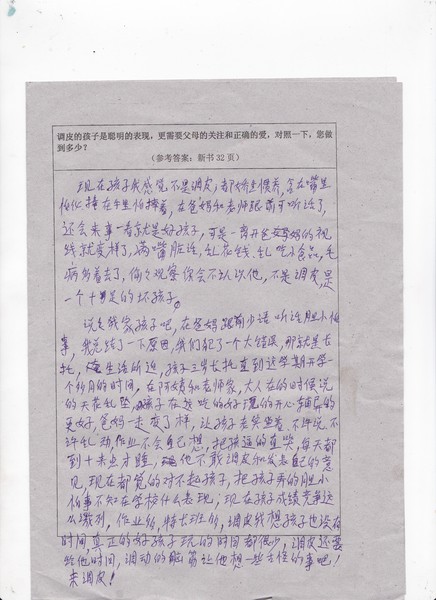 调皮的孩子是聪明的表现，更需要父母的关注和正确的爱，对照一下，您做
到多少？
（参考答案：新书32页）
现在孩子我感觉不是调皮，都娇生惯养，含在嘴里
怕化 捧在手里怕摔着，在爸妈和老师跟前可听话了，
还会来事一看就是好孩子，可是一离开爸妈妈的视
线就变样了，满嘴脏话，乱花钱，乱吃小食品，毛
病多着去了，偷偷观察你会不认识他，不是调皮是
一个十足的坏孩子。
说说我家孩子吧，在爸妈跟前少话 听话胆小怕
事，我总结了一下原因，我们犯了一个大错误，那就是长
托，生活所迫，孩子三岁长托直到这学期开学一
个多月的时间，在阿姨和老师家，大人在的时候说
的天花乱坠，孩子在这吃的好玩的开心辅导的
更好，爸妈一走变了样，让孩子老实坐着，不许说 不
许乱动作业不会自己想，把孩逼的直哭，每天都
到十来点才睡，他不敢调皮和发表自己的意
见，现在都觉的对不起孩子，把孩子弄的胆小
怕事不知在学校什么表现；现在孩子成绩竞争这
么激烈，作业多，特长班多，调皮我想孩子也没有
时间 真正的好孩子玩的时间都很少，调皮还要
给他时间，调动的脑筋让他想一些奇怪的事吧！
来调皮！